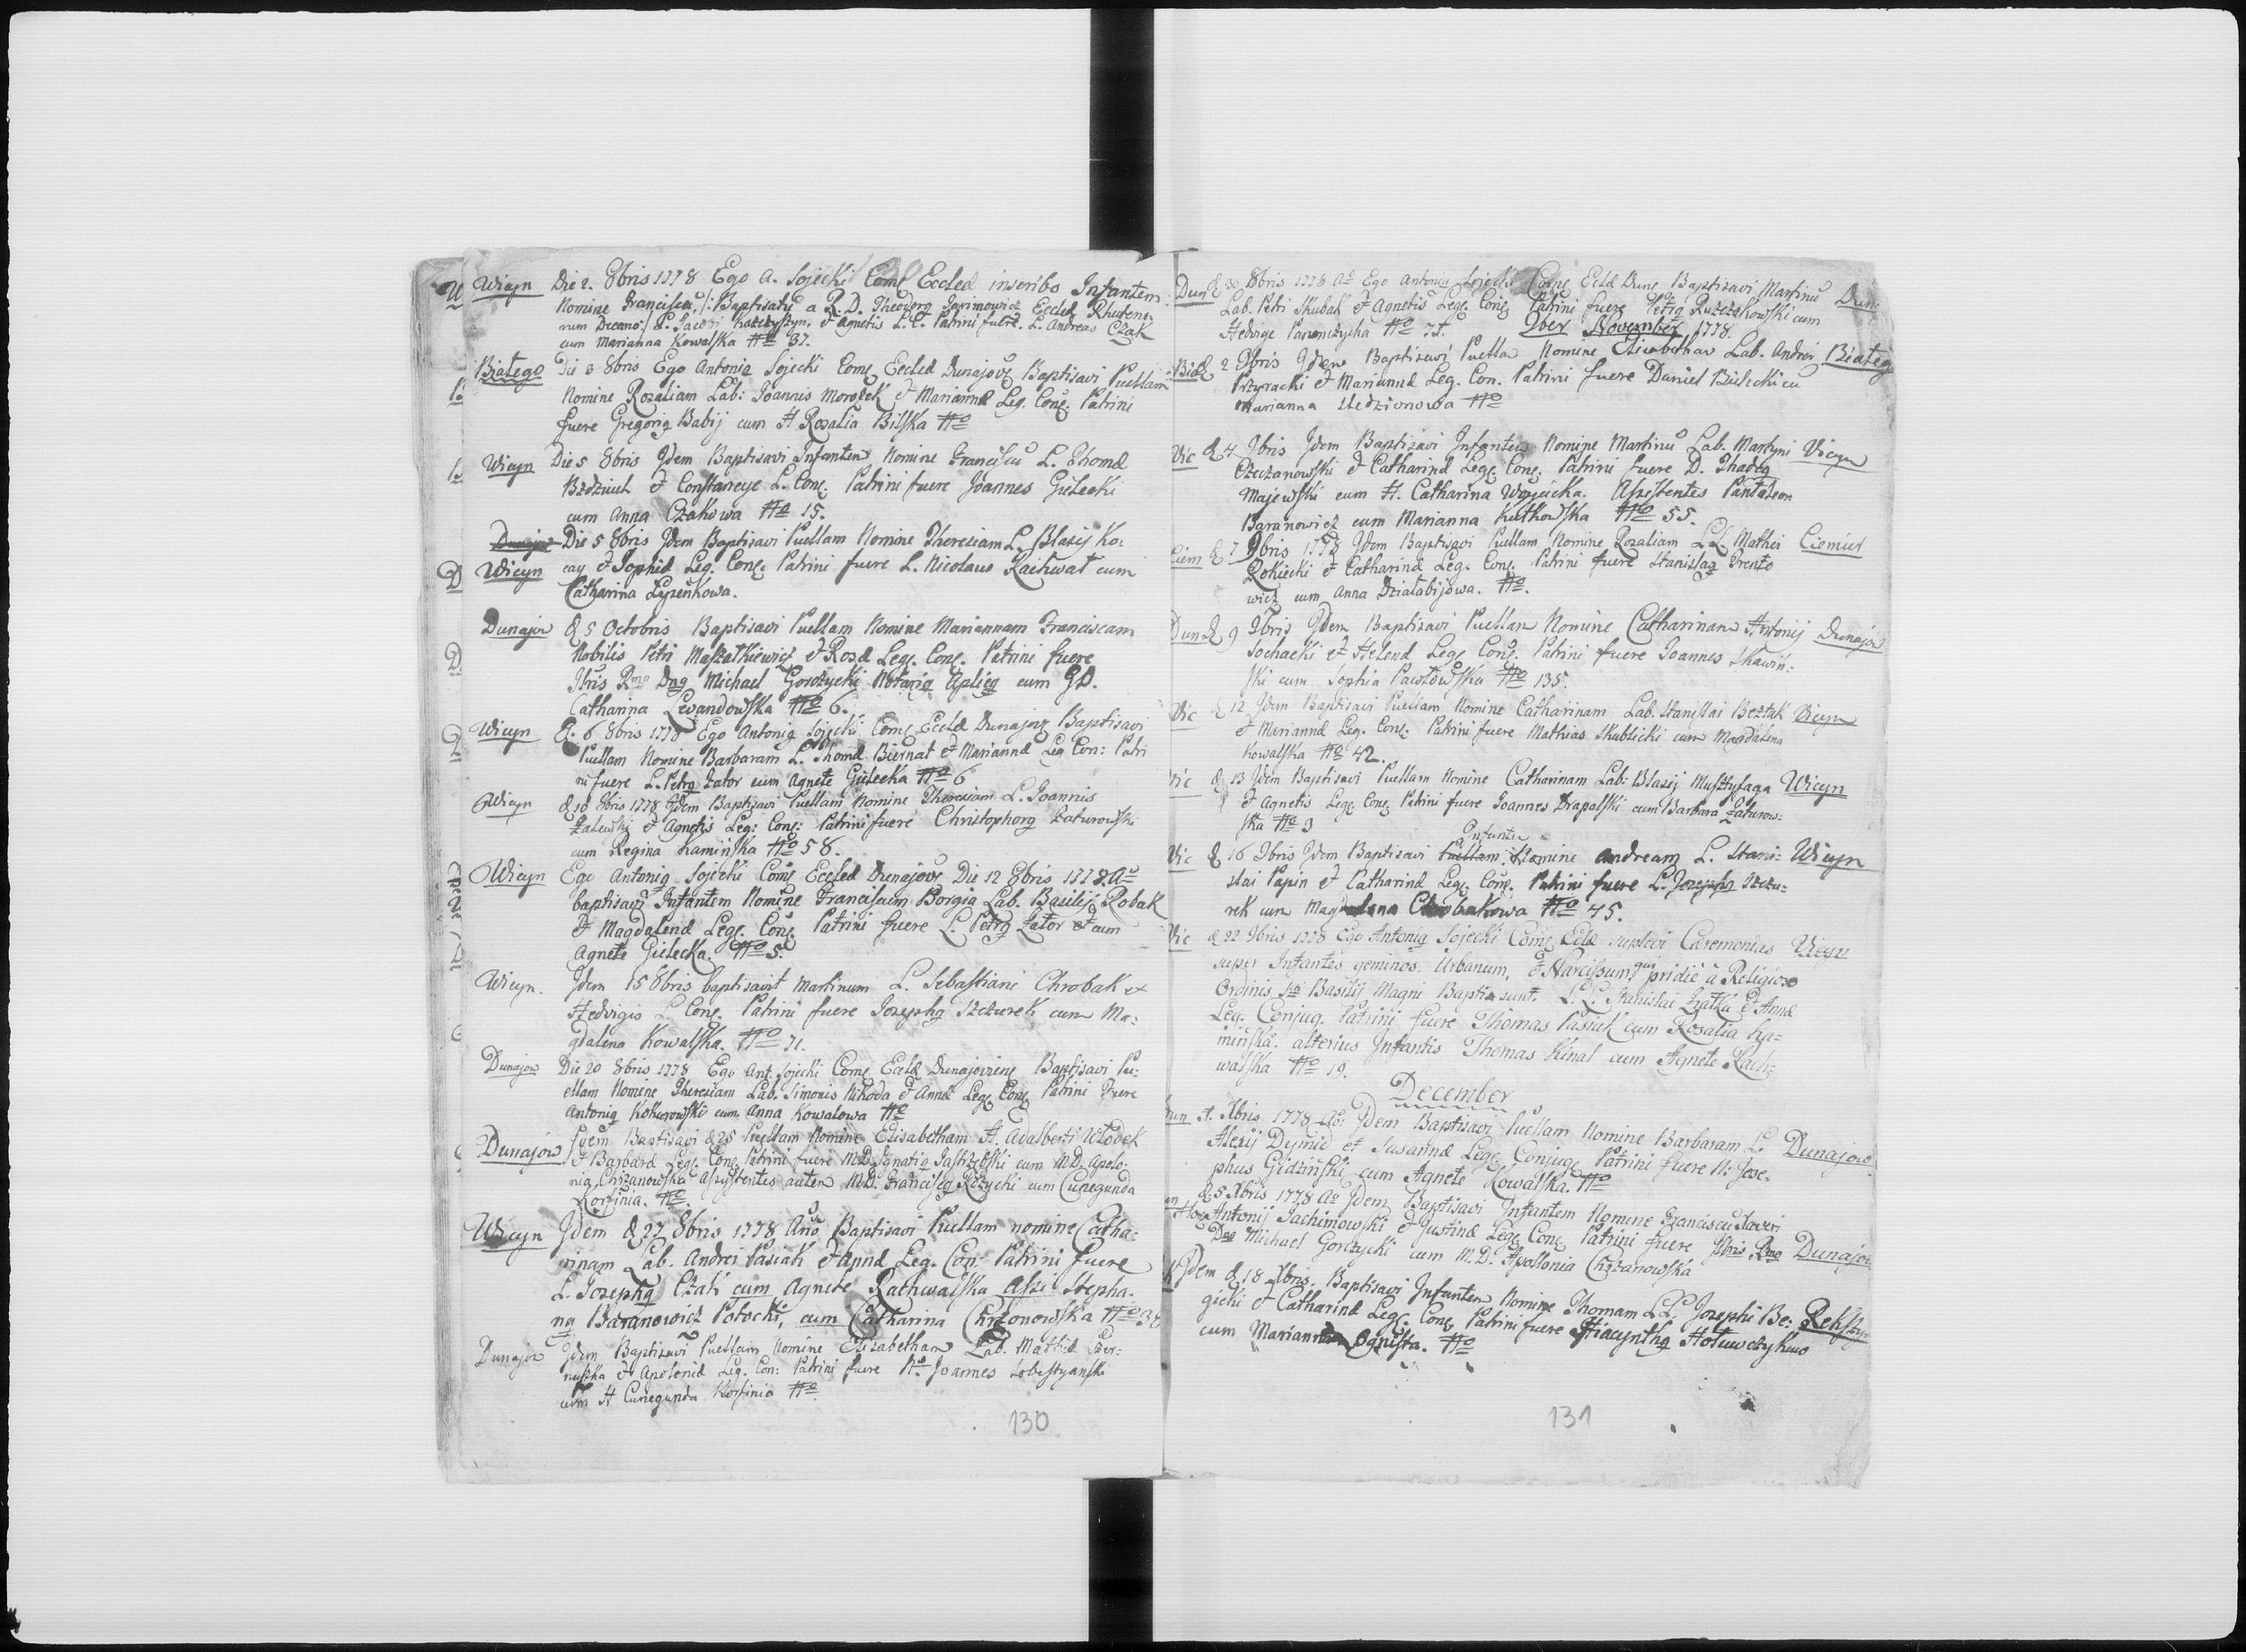 Wicyn Die 2. 8bris 1778 Ego A. Sojecki Com͠ Eccled inscribo Infantem
Nomine Franciscu͠ /: Baptisatu͠ a R. D. Theodorg Jarimowicz Eccled Rutheno-
rum Decano:/ L. Jacobi Et Agnetis L. C. Patrini fuere L. Andreas Czak
cum Marianna Kowalska No 37.
Białego Die 3 8bris Ego Antonig Sojecki Com͠ Eccled Dunajovg Baptisavi Puellam
Nomine Rozaliam Lab: Joannis Morozek et Mariannæ Leg. Conj. Patrini
fuere Gregorig Babij cum H Rosalia Bilska No
Wicyn Die 5 8bris Jdem Baptisavi Infantem Nomine Franciscu͠ L. Thomæ
Bzdziuch et Constancye L. Conj. Patrini fuere Joannes Gielecki
cum Anna Czakowa No 15.
Dunajow Die 5 8bris Jdem Baptisavi Puellam Nomine Theresiam L. Blasij Ko:
Wicyn cay et Sophiæ Leg. Conj. Patrini fuere L. Nicolaus Rachwat cum
Catharina Łysenkowa.
Dunajow d 5 Octobris Baptisavi Puellam Nomine Mariannam Franciscam
Nobilis Petri Maszalkiewicz et Rosæ Leg. Conj. Patrini fuere
Jllris Rmo Dng Michael Gorczycki Notarig Aplicg cum GD.
Catharina Lewandowska No 6.
Wicyn d. 6 8bris 1778 Ego Antonig Sojecki Com͠ Eccled Dunajovg Baptisavi
Puellam Nomine Barbaram L. Thomæ Biernat et Mariannæ Leg Con: Patri
ni fuere L. Petrg Zator cum Agnete Gielecka No 6
Wicyn d 10 8bris 1778 Jdem Baptisavi Puellam Nomine Theresiam L. Joannis
Zalewski et Agnetis Leg: Conj: Patrini fuere Christophorg Zaturowski
cum Regina Kaminska No 58.
Wicyn Ego Antonig Sojecki Com͠ Eccled Dunajovg Die 12 8bris 1778 Ao
baptisavi Infantem Nomine Franciscum Borgia Lab. Basilij Robak
et Magdalenæ Leg. Conj. Patrini fuere L. Petrg Zator et cum
Agnete Gielecka. No 5.
Wicyn. Jdem 15 8bris baptisavit Martinum L. Sebastiani Chrobak et
Hedvigis L. Conj. Patrini fuere Josephg Szczurek cum Ma:
gdalena Kowalska. No 71.
Dunajow Die 20 8bris 1778 Ego Ant. Sojecki Com͠ Eccled Dunajoviens Baptisavi Pu:
ellam Nomine Theresiam Lab. Simonis Nikoda et Annæ Leg. Conj. Patrini fuere
Antonig Kokurowski cum Anna Kowalowa No
Dunajow Jdem Baptisavi d 25 Puellam Nomine Elisabetham H. Adalberti Włodek
et Barbaræ Leg. Conj. Patrini fuere MD. Ignatig Jastrzębski cum MD. Apolo:
nig Chrzanowska Assistentes autem MD. Franciscg Rożycki cum Cunegunda
Korfinia. No
Wicyn Jdem d 27 8bris 1778 Ano Baptisavi Puellam nomine Catha:
rinam Lab. Andrei Pasiak et Annæ Leg. Con: Patrini fuere
L. Josephg Czak cum Agnete Rachwalska Assi: Stepha:
ng Baranowicz Potocki, cum Catharina Chrzonowska No 38
Dunajow Jdem Baptisavi Puellam Nomine Elisabetham Lab. Mathiæ Czer:
nuszka et Apoloniæ Leg. Con: Patrini fuere H. Joannes Lobestyanski
cum H Cunegunda Korfinia No.
130
Dun d 30 8bris 1778 Ao Ego Antonig Sojecki Com͠ Eccld Dung Baptisavi Martinu͠ Dun
Lab. Petri Skubak et Agnetis Leg. Conj. Patrini fuere Petrg Ruszczakowski cum
Hedvige No 75.
9ber November 1778.
d 2 9bris Jdem Baptisavi Puella Nomine Elisabetham Lab. Andrei Białeg
Przyracki et Mariannæ Leg. Con. Patrini fuere Daniel Bielecki cu͠
Marianna Sledzionowa No
Vic d 4 9bris Jdem Baptisavi Infantem Nomine Martinu͠ Lab. Martyni Vicyn
Czeczanowski et Catharinæ Leg. Conj. Patrini fuere D. Thadeg
Majewski cum H. Catharina Woycicka. Assistentes Pantaleon
Baranowicz cum Marianna Kutkowska No 55.
Ciem d 7 9bris 1778 Jdem Baptisavi Puellam Nomine Rozaliam LL. Mathei Ciemier
Rokiecki et Catharinæ Leg. Conj. Patrini fuere Stanislag Trento
wicz cum Anna Działabijowa. No.
Dun d 9 9bris Jdem Baptisavi Puellam Nomine Catharinam Antonij Dunajow
Sochacki et Helenæ Leg. Conj. Patrini fuere Joannes Skawiń:
ski cum Sophia Pawłowska No 135.
Vic d 12 Jdem Baptisavi Puellam Nomine Catharinam Lab. Stanislai Beztak Vicyn
et Mariannæ Leg. Conj. Patrini fuere Mathias Skublicki cum Magdalena
Kowalska No 42.
Vic d 13 Jdem Baptisavi Puellam Nomine Catharinam Lab: Blasij Musztyfaga Wicyn
et Agnetis Leg. Conj. Patrini fuere Joannes Drapalski cum Barbara Zaturow:
ska No 9
Infantem
Vic d 16 9bris Jdem Baptisavi Puellam Nomine Andream L. Stani: Wicyn
slai Papin et Catharinæ Leg. Conj. Patrini fuere L. Josephg Szczu:
rek cum Magdalena Chrobakowa No 45.
Vic d 22 9bris 1778 Ego Antonig Sojecki Com͠ Eccld suplevi Caremonias Vicyn
super Infantes geminos. Urbanum, et Narcissum qui pridie à Religioso
Ordinis Sti Basilij Magni Bapti sunt. L.L. Stanislai Zratka et Annæ
Leg. Conjug. Patrini fuere Thomas Pasiek cum Rosalia Ka=
minska. alterius Infantis Thomas Kinal cum Agnete Rach:
walska No 19.
December
4. Xbris 1778 Ao: Jdem Baptisavi Puellam Nomine Barbaram L. Dunajow
Alexij Dymid et Susannæ Leg. Conjug. Patrini fuere N: Jose-
phus Gidziński cum Agnete Kowalska. No
d 5 Xbris 1778 Ao Jdem Baptisavi Infantem Nomine Franciscu͠ Xaveri
Antonij Jachimowski et Justinæ Leg. Conj. Patrini fuere Jllris Rmo Dunajow
Dno Michael Gorczycki cum M.D. Apollonia Chrzanowska
Jdem d 18 Xbris. Baptisavi Infantem Nomine Thomam LL. Josephi Be: Rekszyn
gicki et Catharinæ Leg. Conj. Patrini fuere Hiacynthg Hołuwczykwo
cum Marianna Ognista. No
131